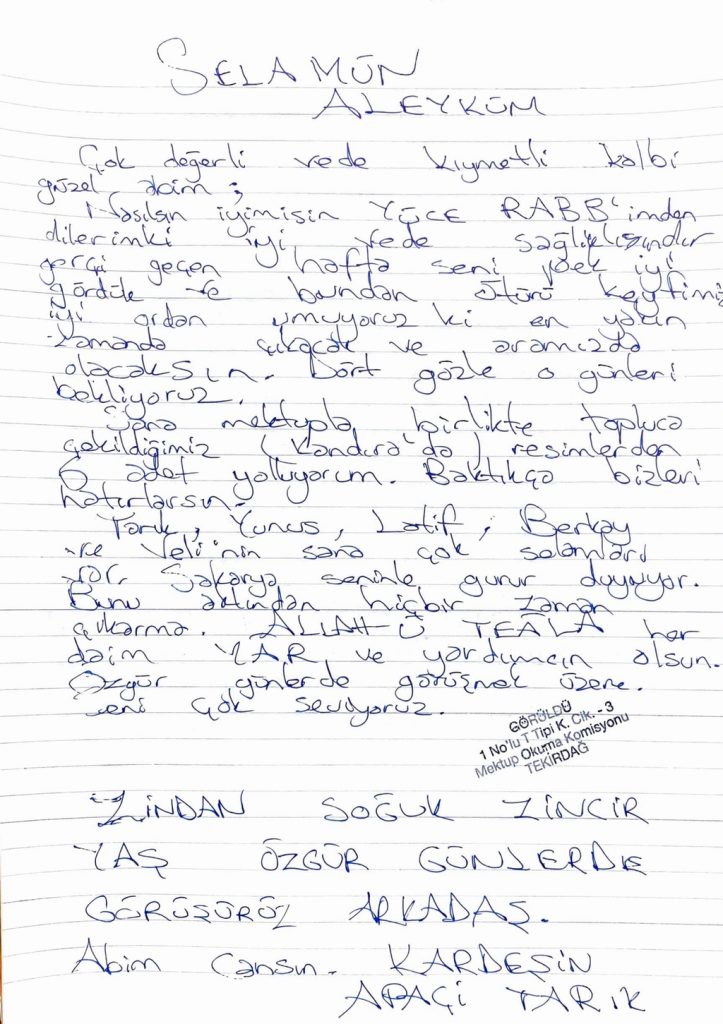 SELAMÜN
ALEYKÜM
Çok değerli vede kıymetli kalbi
güzel abim ;
Nasılsın iyimisin YÜCE RABB'imden
dilerimki iyi vede sağlıklısındır
gerçi geçen hafta seni pek iyi
gördük ve bundan ötürü keyfimiz
iyi ordan umuyoruz ki en yakın
zamanda çıkacak ve aramızda
olacaksın. Dört gözle o günleri
bekliyoruz.
Sana mektupla birlikte topluca
çekildiğimiz (Kandıra'da) resimlerden
6 adet yolluyorum. Baktıkça bizleri
hatırlarsın.
Tarık, Yunus, Latif, Berkay
ve Veli'nin sana çok selamları
var. Sakarya seninle gurur duyuyor.
Bunu aklından hiçbir zaman
çıkarma. ALLAH-Ü TEALA her
daim YAR ve yardımcın olsun.
Özgür günlerde görüşmek üzere.
Seni çok seviyoruz.
GÖRÜLDÜ
1 No'lu T Tipi K. Cik. - 3
Mektup Okuma Komisyonu
TEKİRDAĞ
ZİNDAN SOĞUK ZİNCİR
YAŞ ÖZGÜR GÜNLERDE
GÖRÜŞÜRÜZ ARKADAŞ.
Abim Cansın. KARDEŞİN
APAÇİ TARIK